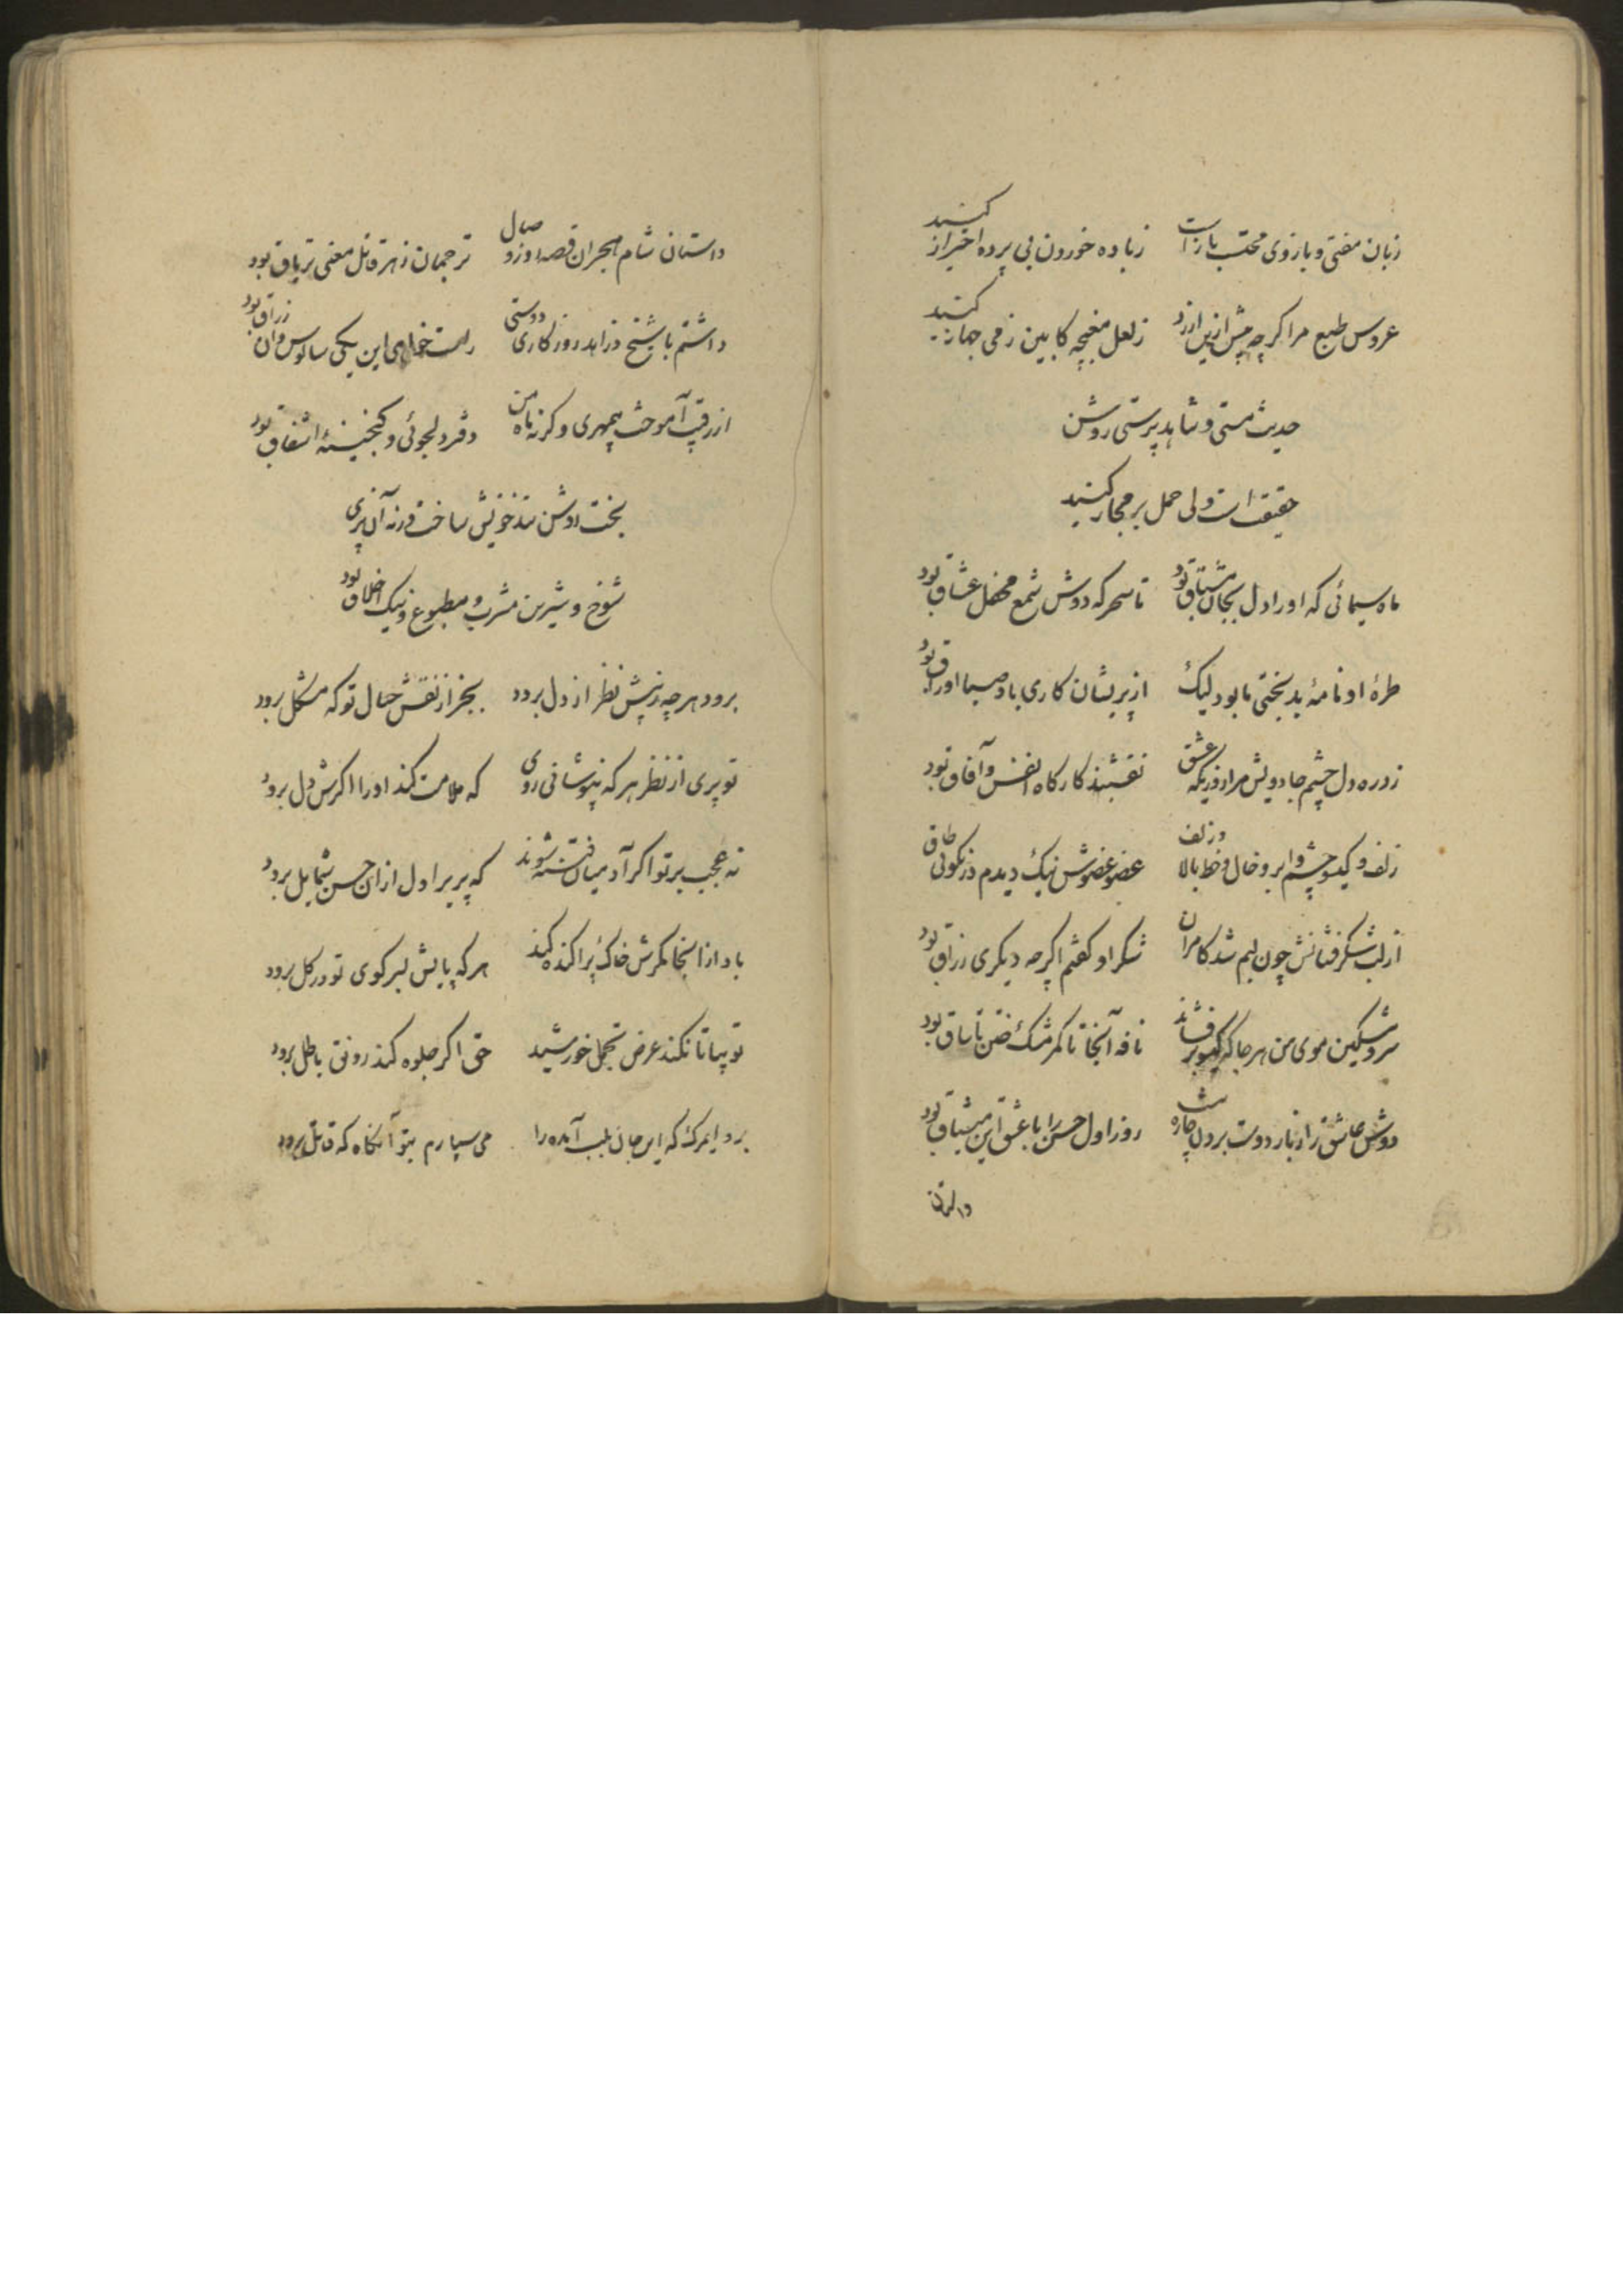 زبان مفتی و بازوی محتسب بازاست زباده خوردن بی پرده احتراز کنید
عروس طبع مرا کرچه بیش ازین ارزد زلعل مغبچه کابین زمی جهاز کنید
حدیث مستی و شاهد پرستی روشن
حقیقت است ولی حمل بر مجاز کنید
ماه سیمائی که او را دل بجان مشتاق بود تا سحر که دوش شمع محفل عشاق بود
طرهٔ او نامهٔ بدبختی ما بود لیک از پریشان کاری باد صبا اوراق بود
زد ره دل چشم جادویش مرا در عشق نقشبند کارکاه انفس و آفاق بود
زلف و کیسو چشم و ابرو خال و خط بالا عضو عضوش نیک دیدم در نکوئی طاق
از لب شکر فشانش چون لبم شد کامران شکر او کفتم اکرچه دیکری رزاق بود
سرو مشکین موی من هر جا که کیسو برفشاند نافه آنجا تا کمر مشک ختن تا ساق بود
دوش عاشق را زبار دوست بر دل چاره روز اول حسن را با عشق این میثاق بود
داستان شام هجران قصه روز وصال ترجمان زهر قاتل معنی تریاق بود
داشتم با شیخ و زاهد روزکاری دوستی راست خواهی این یکی سالوس و آن زراق بود
از رقیب آموخت بیمهری وکرنه ماه من دفتر دلجوئی و کنجینهٔ اشفاق بود
بخت روشن تندخویش ساخت ورنه آن پری
شوخ و شیرین مشرب و مطبوع و نیک اخلاق بود
برود هر چه ز پیش نظر از دل برود بجز از نقش خیال تو که مشکل برود
تو پری از نظر هر که بپوشانی روی که ملامت کند او را اکرش دل برود
نه عجب بر تو اکر آدمیان فتنه شوند که پریرا دل از ان حسن شمایل برود
باد از انجا مکرش خاک پراکنده کند هر که پایش بسر کوی تو در کل برود
تو بیا تا نکند عرض تجمل خورشید حق اکر جلوه کند رونق باطل برود
برو ایمرک که این جان بلب آمده را می سپارم بتو آنکاه که قاتل برود